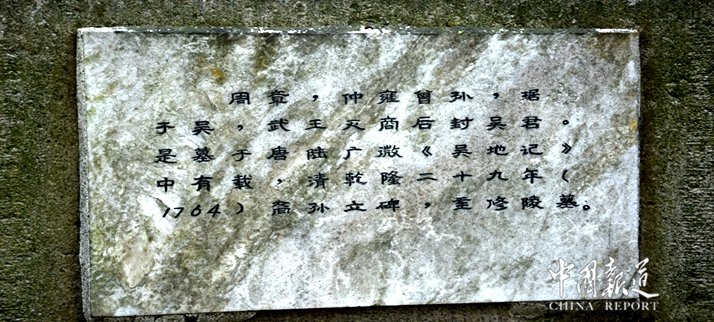 周章，仲雍曾孙，据
于吴，武王灭商后封吴君。
是墓于唐陆广微《吴地记》
中有载，清乾隆二十九年（
1764）裔孙立碑，至修陵墓。
中国报道
CHINA REPORT